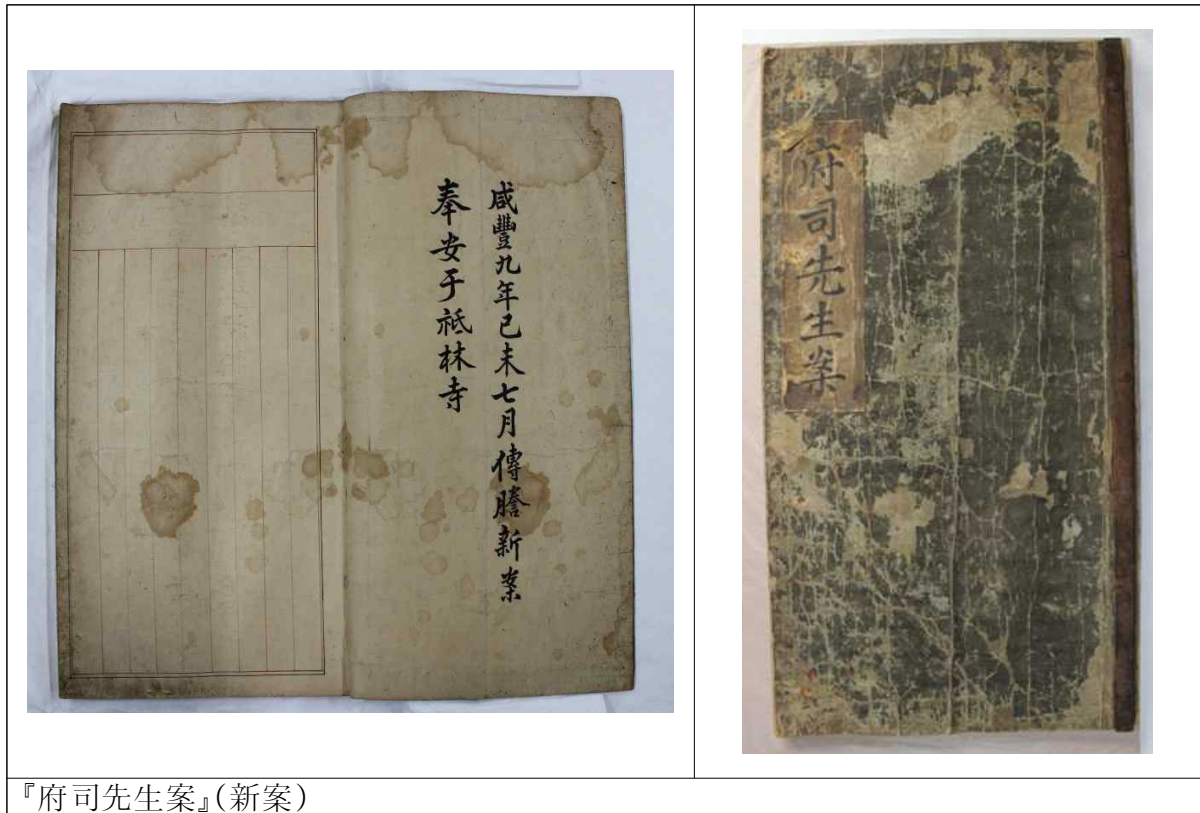 咸豐九年己未七月傳謄新案
奉安于祇林寺
府司先生案
『府司先生案』(新案)